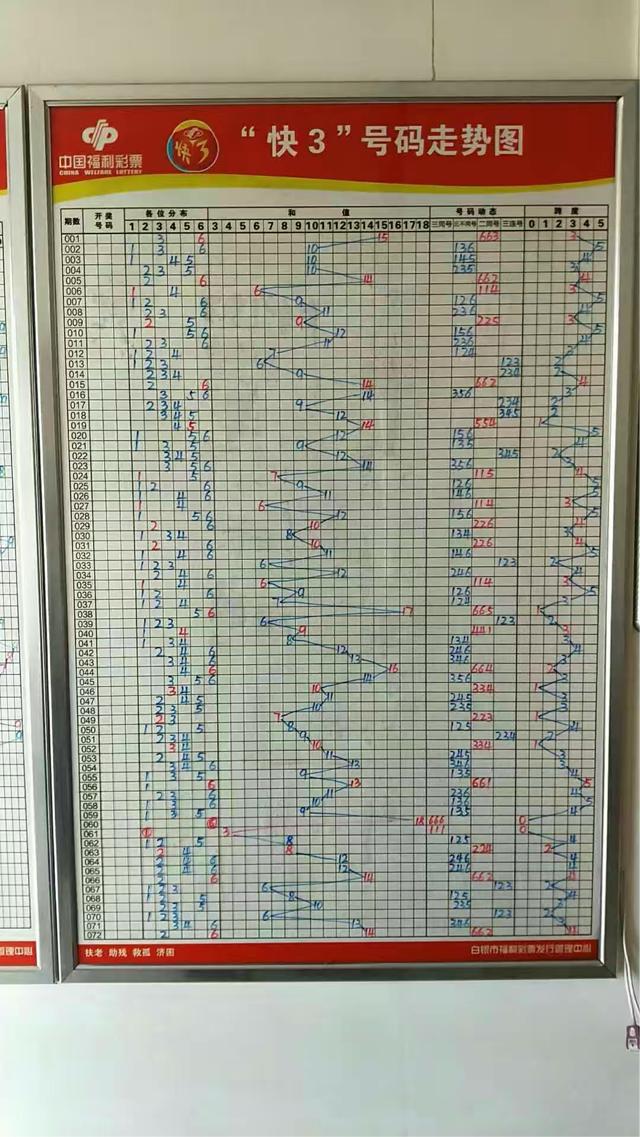 中国福利彩票
CHINA WELFARE LOTTERY
快3
“快3”号码走势图
期数 开奖号码 各位分布 和值 号码动态 跨度
1 2 3 4 5 6 3 4 5 6 7 8 9 10 11 12 13 14 15 16 17 18 三同号 三不同号 二同号 三连号 0 1 2 3 4 5
001 3 6 15 663 3
002 1 3 6 10 136 5
003 1 4 5 10 145 4
004 2 3 5 10 235 3
005 2 6 14 662 4
006 1 4 6 114 3
007 1 2 6 9 126 5
008 2 3 6 11 236 4
009 2 5 9 225 3
010 1 5 6 12 156 5
011 2 3 6 11 236 4
012 1 2 4 7 124 3
013 1 2 3 6 123 2
014 2 3 4 9 234 2
015 2 6 14 662 4
016 3 5 6 14 356 3
017 2 3 4 9 234 2
018 3 4 5 12 345 2
019 4 5 14 554 1
020 1 5 6 12 156 5
021 1 3 5 9 135 4
022 3 4 5 12 345 2
023 3 5 6 14 356 3
024 1 5 7 115 4
025 1 2 6 9 126 5
026 1 4 6 11 146 5
027 1 4 6 114 3
028 1 5 6 12 156 5
029 2 6 10 226 4
030 1 3 4 8 134 3
031 2 6 10 226 4
032 1 4 6 11 146 5
033 1 2 3 6 123 2
034 2 4 6 12 246 4
035 1 4 6 114 3
036 1 2 6 9 126 5
037 1 2 4 7 124 3
038 5 6 17 665 1
039 1 2 3 6 123 2
040 1 4 9 441 3
041 1 3 4 8 134 3
042 2 4 6 12 246 4
043 3 4 6 13 346 3
044 4 6 16 664 2
045 3 5 6 14 356 3
046 3 4 10 334 1
047 2 4 5 11 245 3
048 2 3 5 10 235 3
049 2 3 7 223 1
050 1 2 5 8 125 4
051 2 3 4 9 234 2
052 3 4 10 334 1
053 2 4 5 11 245 3
054 3 4 6 13 346 3
055 1 3 5 9 135 4
056 1 6 13 661 5
057 2 3 6 11 236 4
058 1 3 6 10 136 5
059 1 3 5 9 135 4
060 6 18 666 0
061 1 3 111 0
062 1 2 5 8 125 4
063 2 4 8 224 2
064 2 4 6 12 246 4
065 2 4 6 12 246 4
066 2 6 14 662 4
067 1 2 3 6 123 2
068 1 2 5 8 125 4
069 2 3 5 10 235 3
070 1 2 3 6 123 2
071 3 4 6 13 346 3
072 2 6 14 662 4
扶老 助残 救孤 济困 白银市福利彩票发行管理中心
管理中心